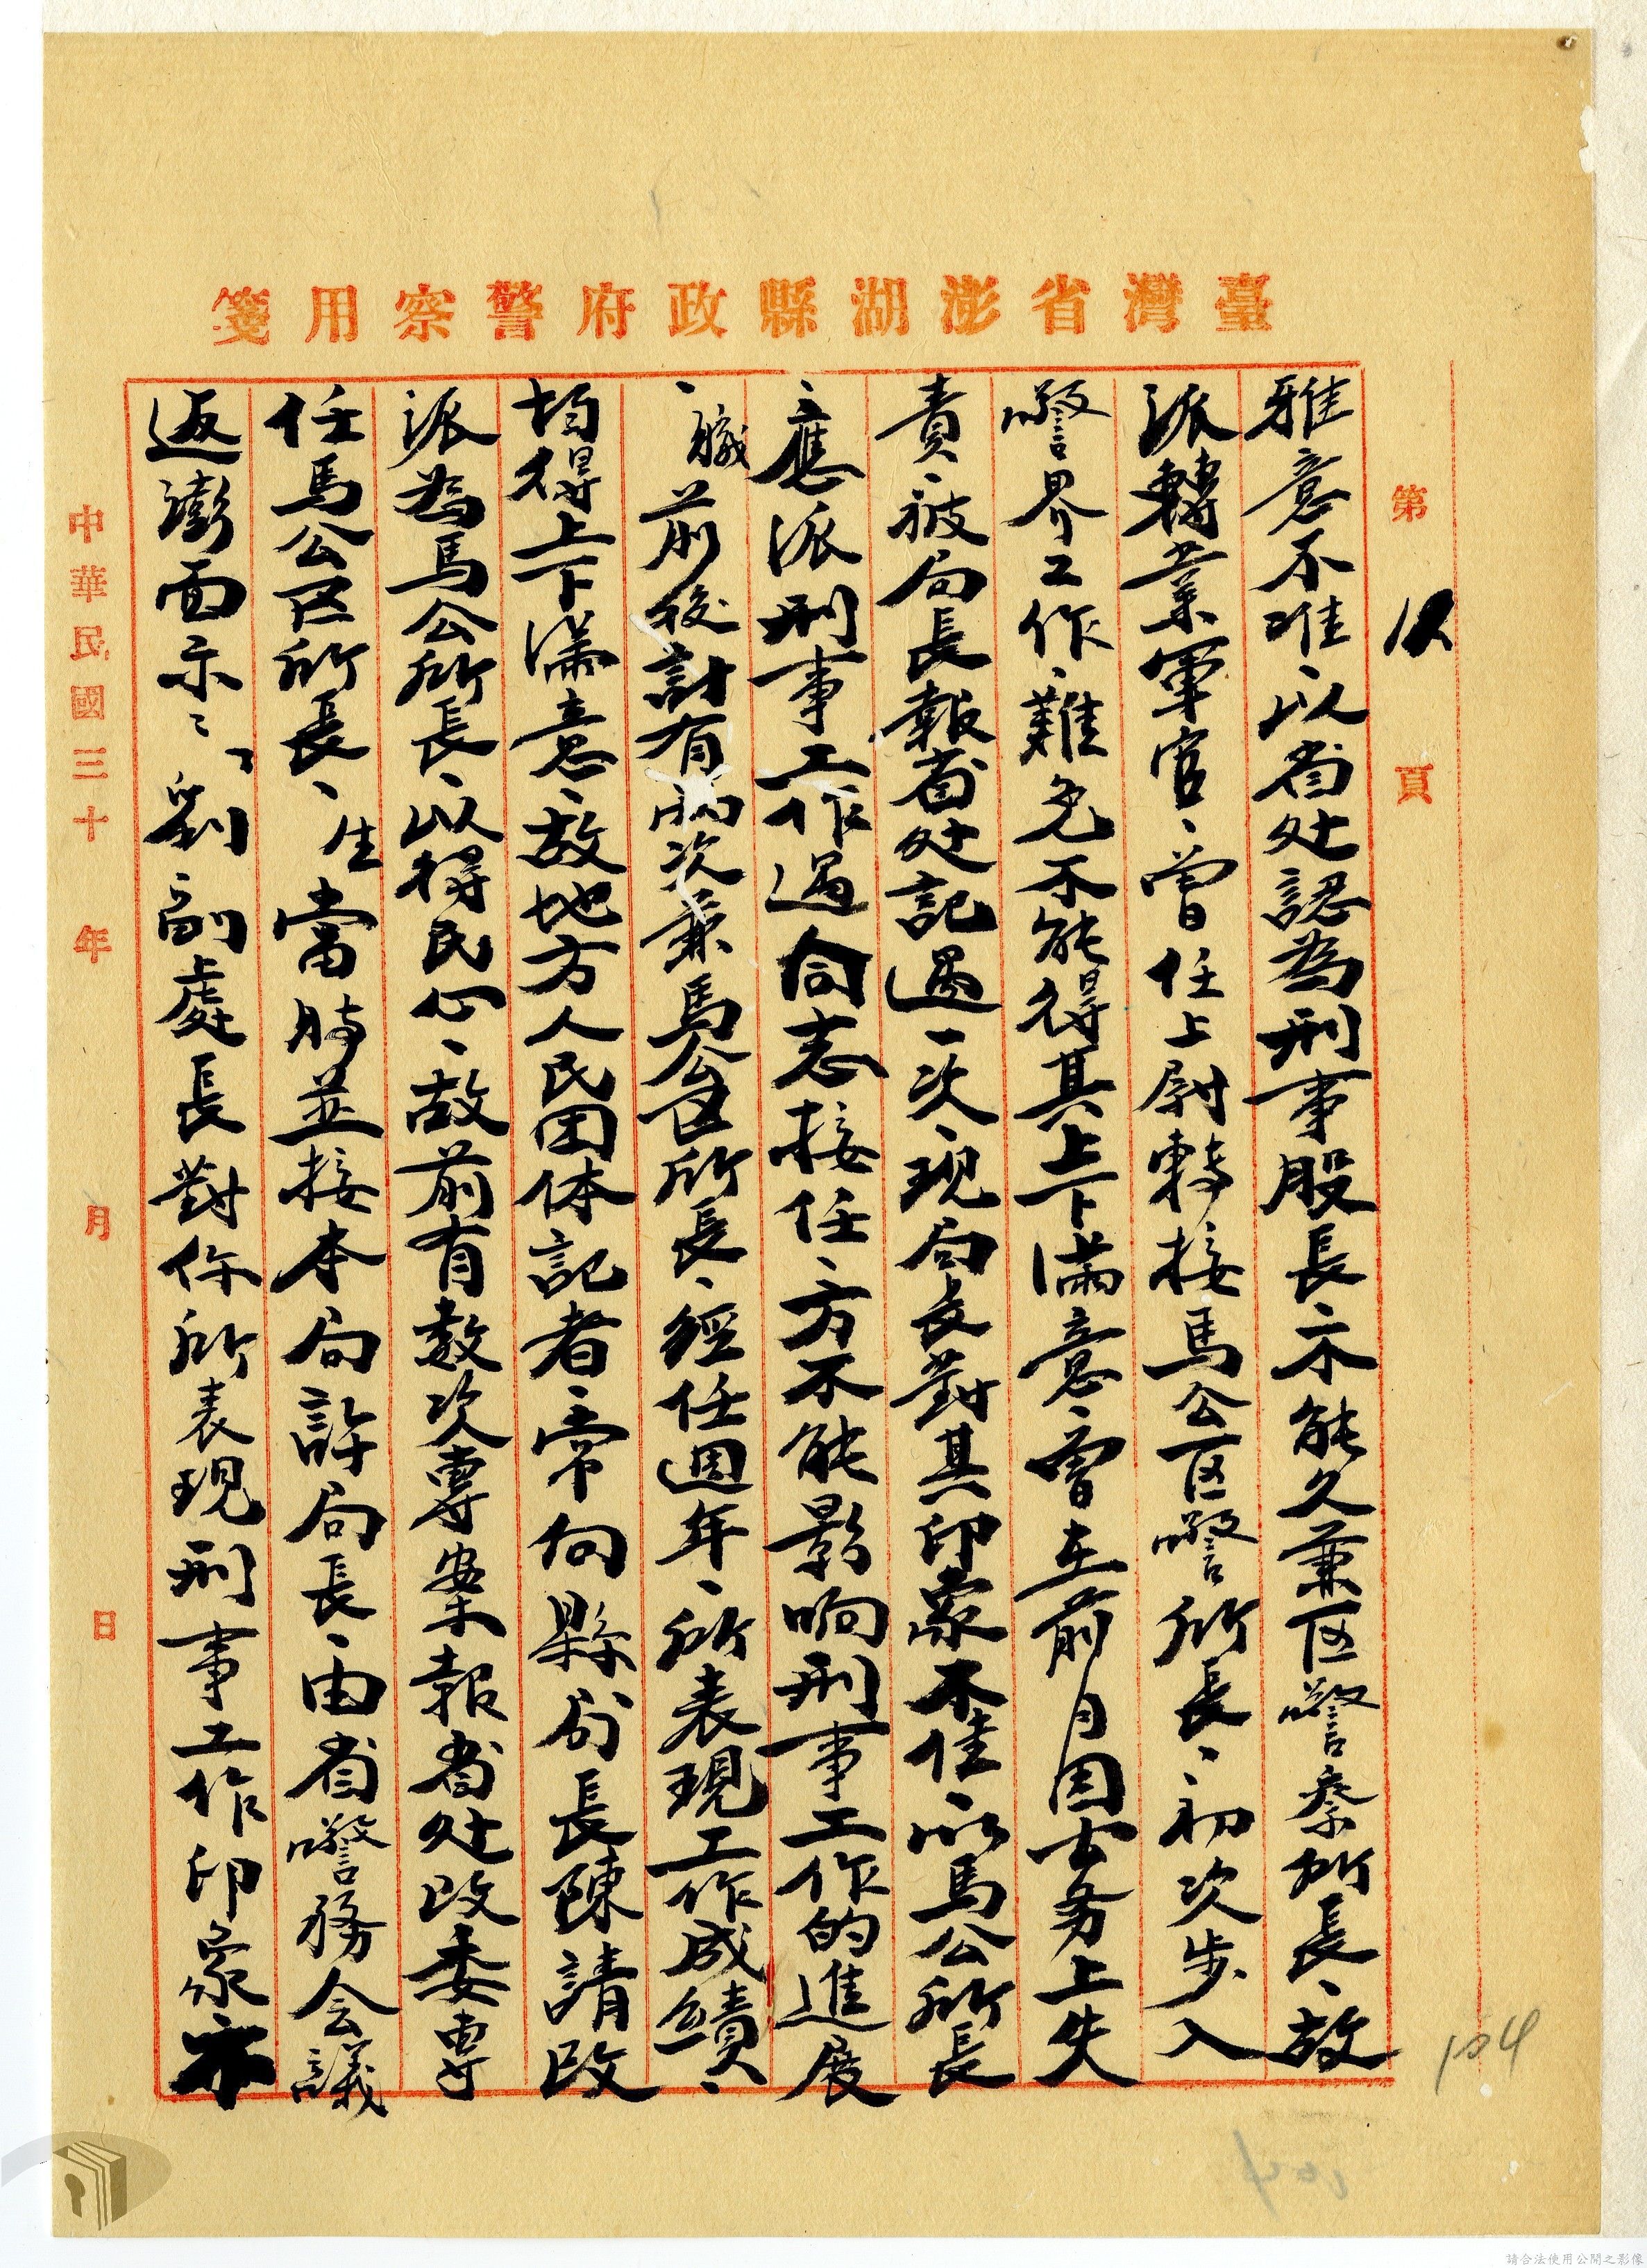 臺灣省澎湖縣政府警察用箋
第
頁
雅意不准、以省处認為刑事股長不能久兼区警察所長、故
派轉業軍官、曾任上尉轉接馬公区警所長、初次步入
警界工作、難免不能得其上下滿意、曾在前月因公务上失
責、被局長報省处記過一次、現局長對其印象不佳、以馬公所長
應派刑事工作過同志接任、方不能影响刑事工作的進展
、職前後計有兩次兼馬公区所長、經任週年、所表現工作成績、
均得上下滿意、故地方人民团体記者、常向縣局長陳請改
派為馬公所長、以得民心、故前有数次專案報省处改委專
任馬公区所長、生當時並接本局許局長、由省警務会議
返澎面示：「劉副處長對你所表現刑事工作印象亦
中華民國三十年
月
日
104
請合法使用公開之影像